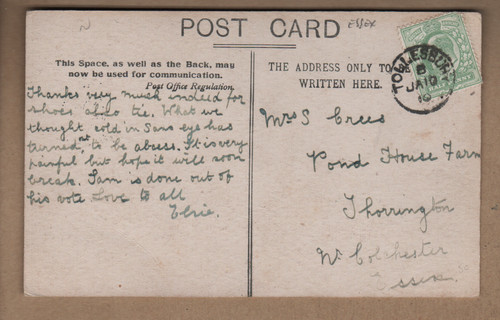 POST CARD
ESSEX
This Space, as well as the Back, may
now be used for communication.
Post Office Regulation.
THE ADDRESS ONLY TO BE
WRITTEN HERE.
TOLLESBURY
JA 10
10
Thanks very much indeed for
shoes also tie. What we
thought cold in Sams eye has
turned out to be absess. It is very
painful but hope it will soon
break. Sam is done out of
his vote Love to all
Elsie.
Mrs S Crees
Pond House Farm
Thorrington
Nr Colchester
Essex